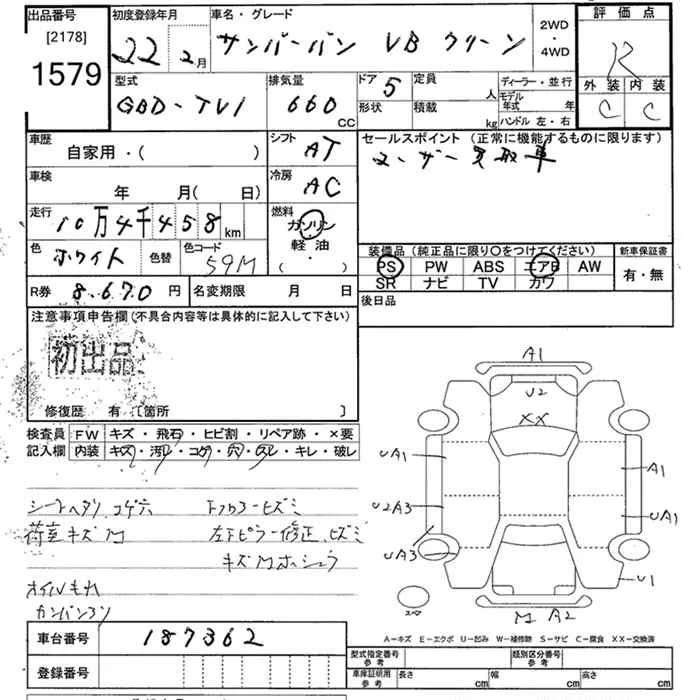 出品番号
[2178]
1579
初度登録年月
22年 2月
車名・グレード
サンバーバン VB クリーン
2WD
・
4WD
評価点
R
外装 内装
C C
型式
GBD-TV1
排気量
660
CC
ドア 5
形状
定員
人
積載
kg
ディーラー・並行
モデル年式 年
ハンドル 左・右
車歴
自家用・( )
シフト
AT
セールスポイント (正常に機能するものに限ります)
ユーザー買取車
車検
年 月( 日)
冷房
AC
走行
10万4千458km
燃料
ガソリン
・
軽油
・
( )
色
ホワイト
色替
色コード
59M
装備品(純正品に限り○をつけてください)
PS PW ABS エアB AW
SR ナビ TV カワ
新車保証書
有・無
R券 8,670円
名変期限 月 日
後日品
注意事項申告欄(不具合内容等は具体的に記入して下さい)
初出品
修復歴 有 [箇所 ]
検査員記入欄
FW キズ・飛石・ヒビ割・リペア跡・×要
内装 キズ・汚レ・コゲ・穴・スレ・キレ・破レ
シートヘタリ コゲ穴
荷室キズM
オイルもれ
カンバンコン
下フロアーヒズミ
左下ピラー修正、ヒズミ
キズMホシュウ
A1
U2
XX
UA1
A1
U2A3
UA1
UA3
U1
M A2
スペア
A-キズ E-エクボ U-凹み W-補修跡 S-サビ C-腐食 XX-交換済
車台番号
187362
登録番号
型式指定番号
参考
類別区分番号
参考
車庫証明用
参考
長さ cm
幅 cm
高さ cm